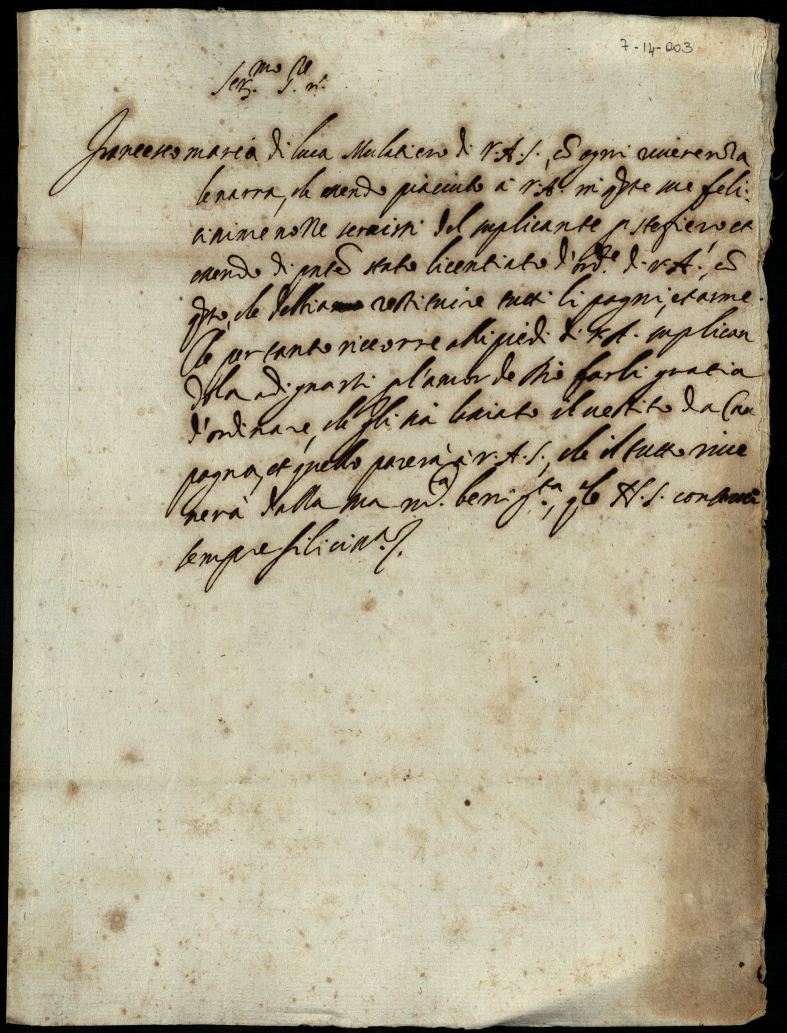 7-14-003
Ser.mo S.re
Francesco maria di luca Mulatiero di V.A.S., cõ ogni riverenza
le narra, che essendo piaciuto à V.A. in q̃ste sue feli:
cissime nozze servirsi del suplicante p staffiero, et
essendo di pñte stato licentiato d'ord.e di V.A., cõ
q̃sto, che debbia restituire tutti li pagni, et arme.
Che per tanto ricorre alli piedi di V.A. suplican
dola a dignarsi p l'amor de Dio farli gratia
d'ordinare, che gli sia lasciato il vestito da Cam
pagna, et quello parerà à V.A.S., che il tutto rice
nerà dalla sua m.a benig.ta, che N.S. conservi
sempre feliciss.a